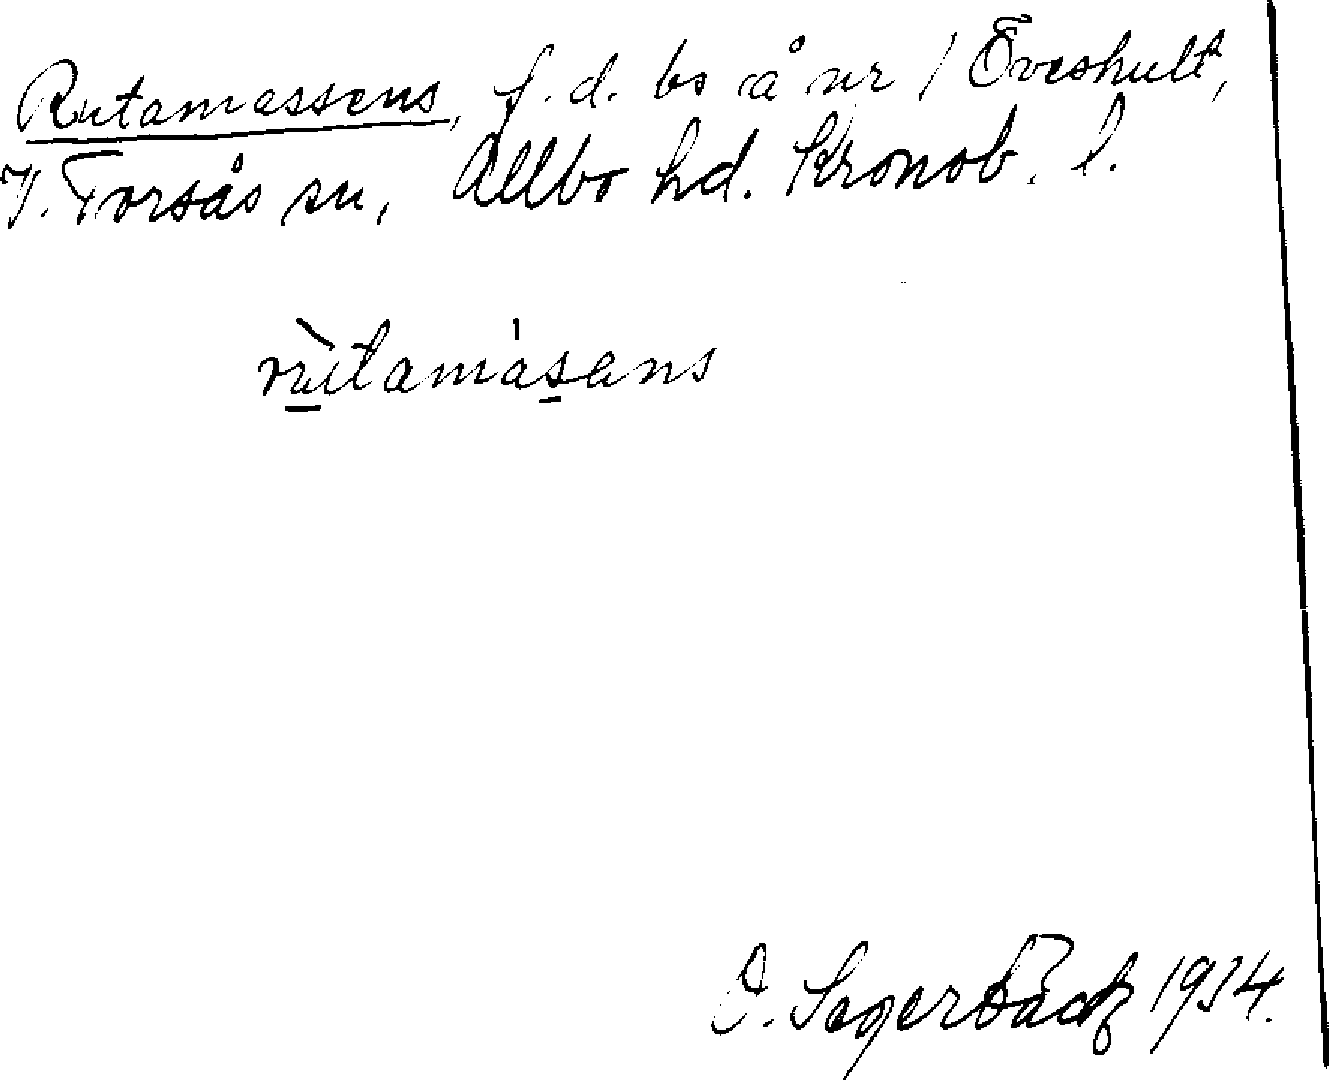 Rutamassens, f.d. bs å nr 1 Öveshult,
V. Torsås sn, Allbo hd. Kronob. l.
rùtamásans
C. Segerbäck 1934.